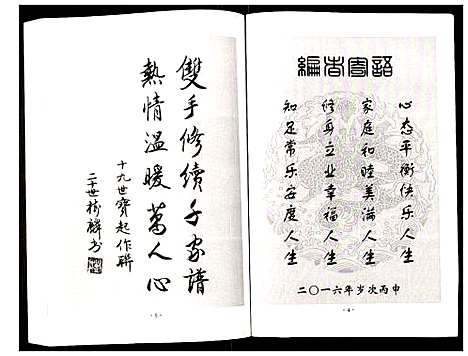 編者寄語
心态平衡快乐人生
家庭和睦美滿人生
修身立业幸福人生
知足常乐安度人生
二〇一六年岁次丙申
雙手修續千家譜
熱情溫暖萬人心
十九世寶起作聯
二十世樹